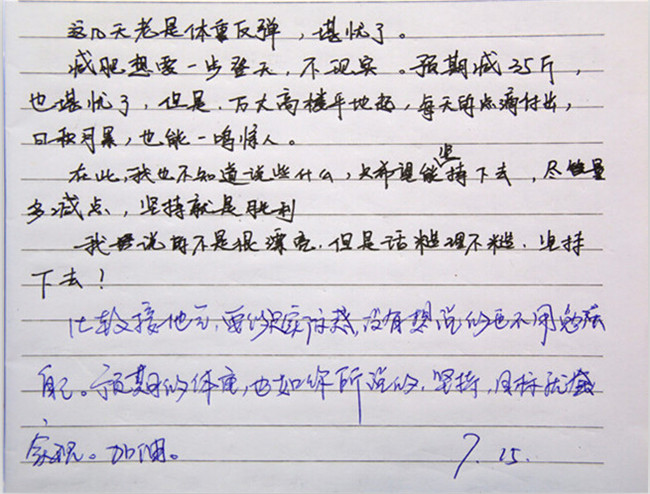 这几天老是体重反弹，堪忧了。
减肥想要一步登天，不现实。预期减35斤，
也堪忧了，但是，万丈高楼平地起，每天的点滴付出，
日积月累，也能一鸣惊人。
在此，我也不知道说些什么，只希望能坚持下去，尽能量
多减点，坚持就是胜利
我说的不是很漂亮，但是话糙理不糙，坚持
下去！
比较接地气，要的是实际，没有想说的也不用勉强
自己。预期的体重，也如你所说的，坚持，目标就能
实现。加油。
7.15.